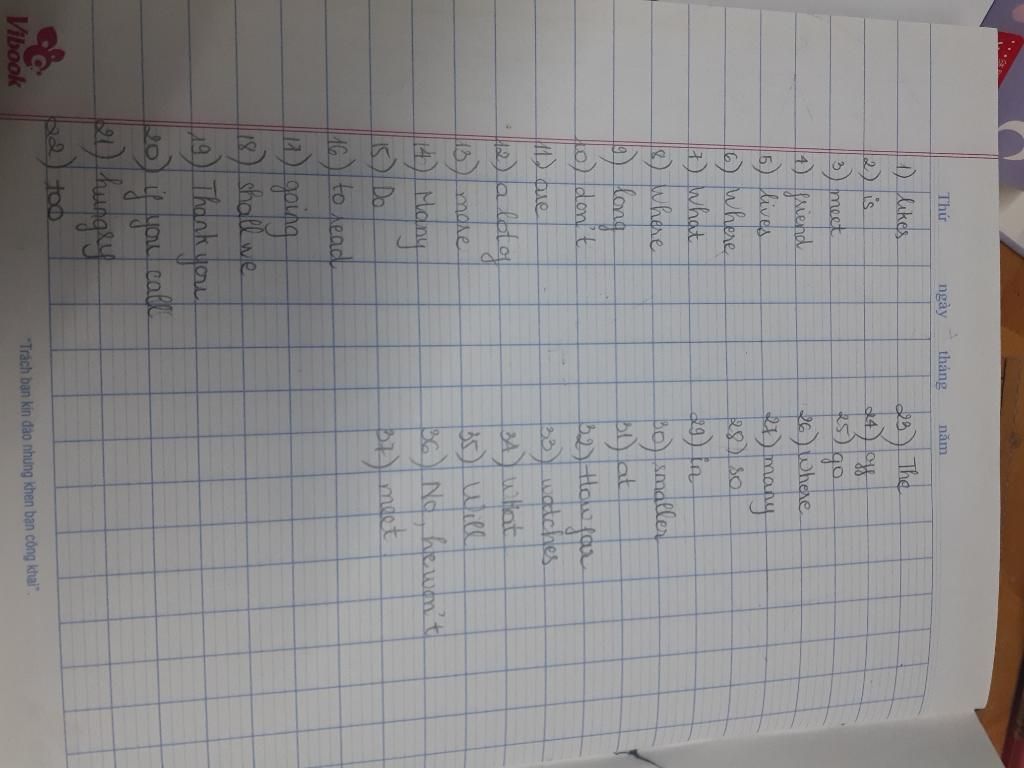 Thứ ngày tháng năm
1) likes
2) is
3) meet
4) friend
5) lives
6) Where
7) What
8) Where
9) long
10) don't
11) are
12) a lot of
13) more
14) Many
15) Do
16) to read
17) going
18) shall we
19) Thank you
20) if you call
21) hungry
22) too
23) The
24) off
25) go
26) Where
27) many
28) so
29) in
30) smaller
31) at
32) How far
33) watches
34) What
35) Will
36) No, he won't
37) meet
Vibook
"Trách bạn kín đáo nhưng khen bạn công khai".